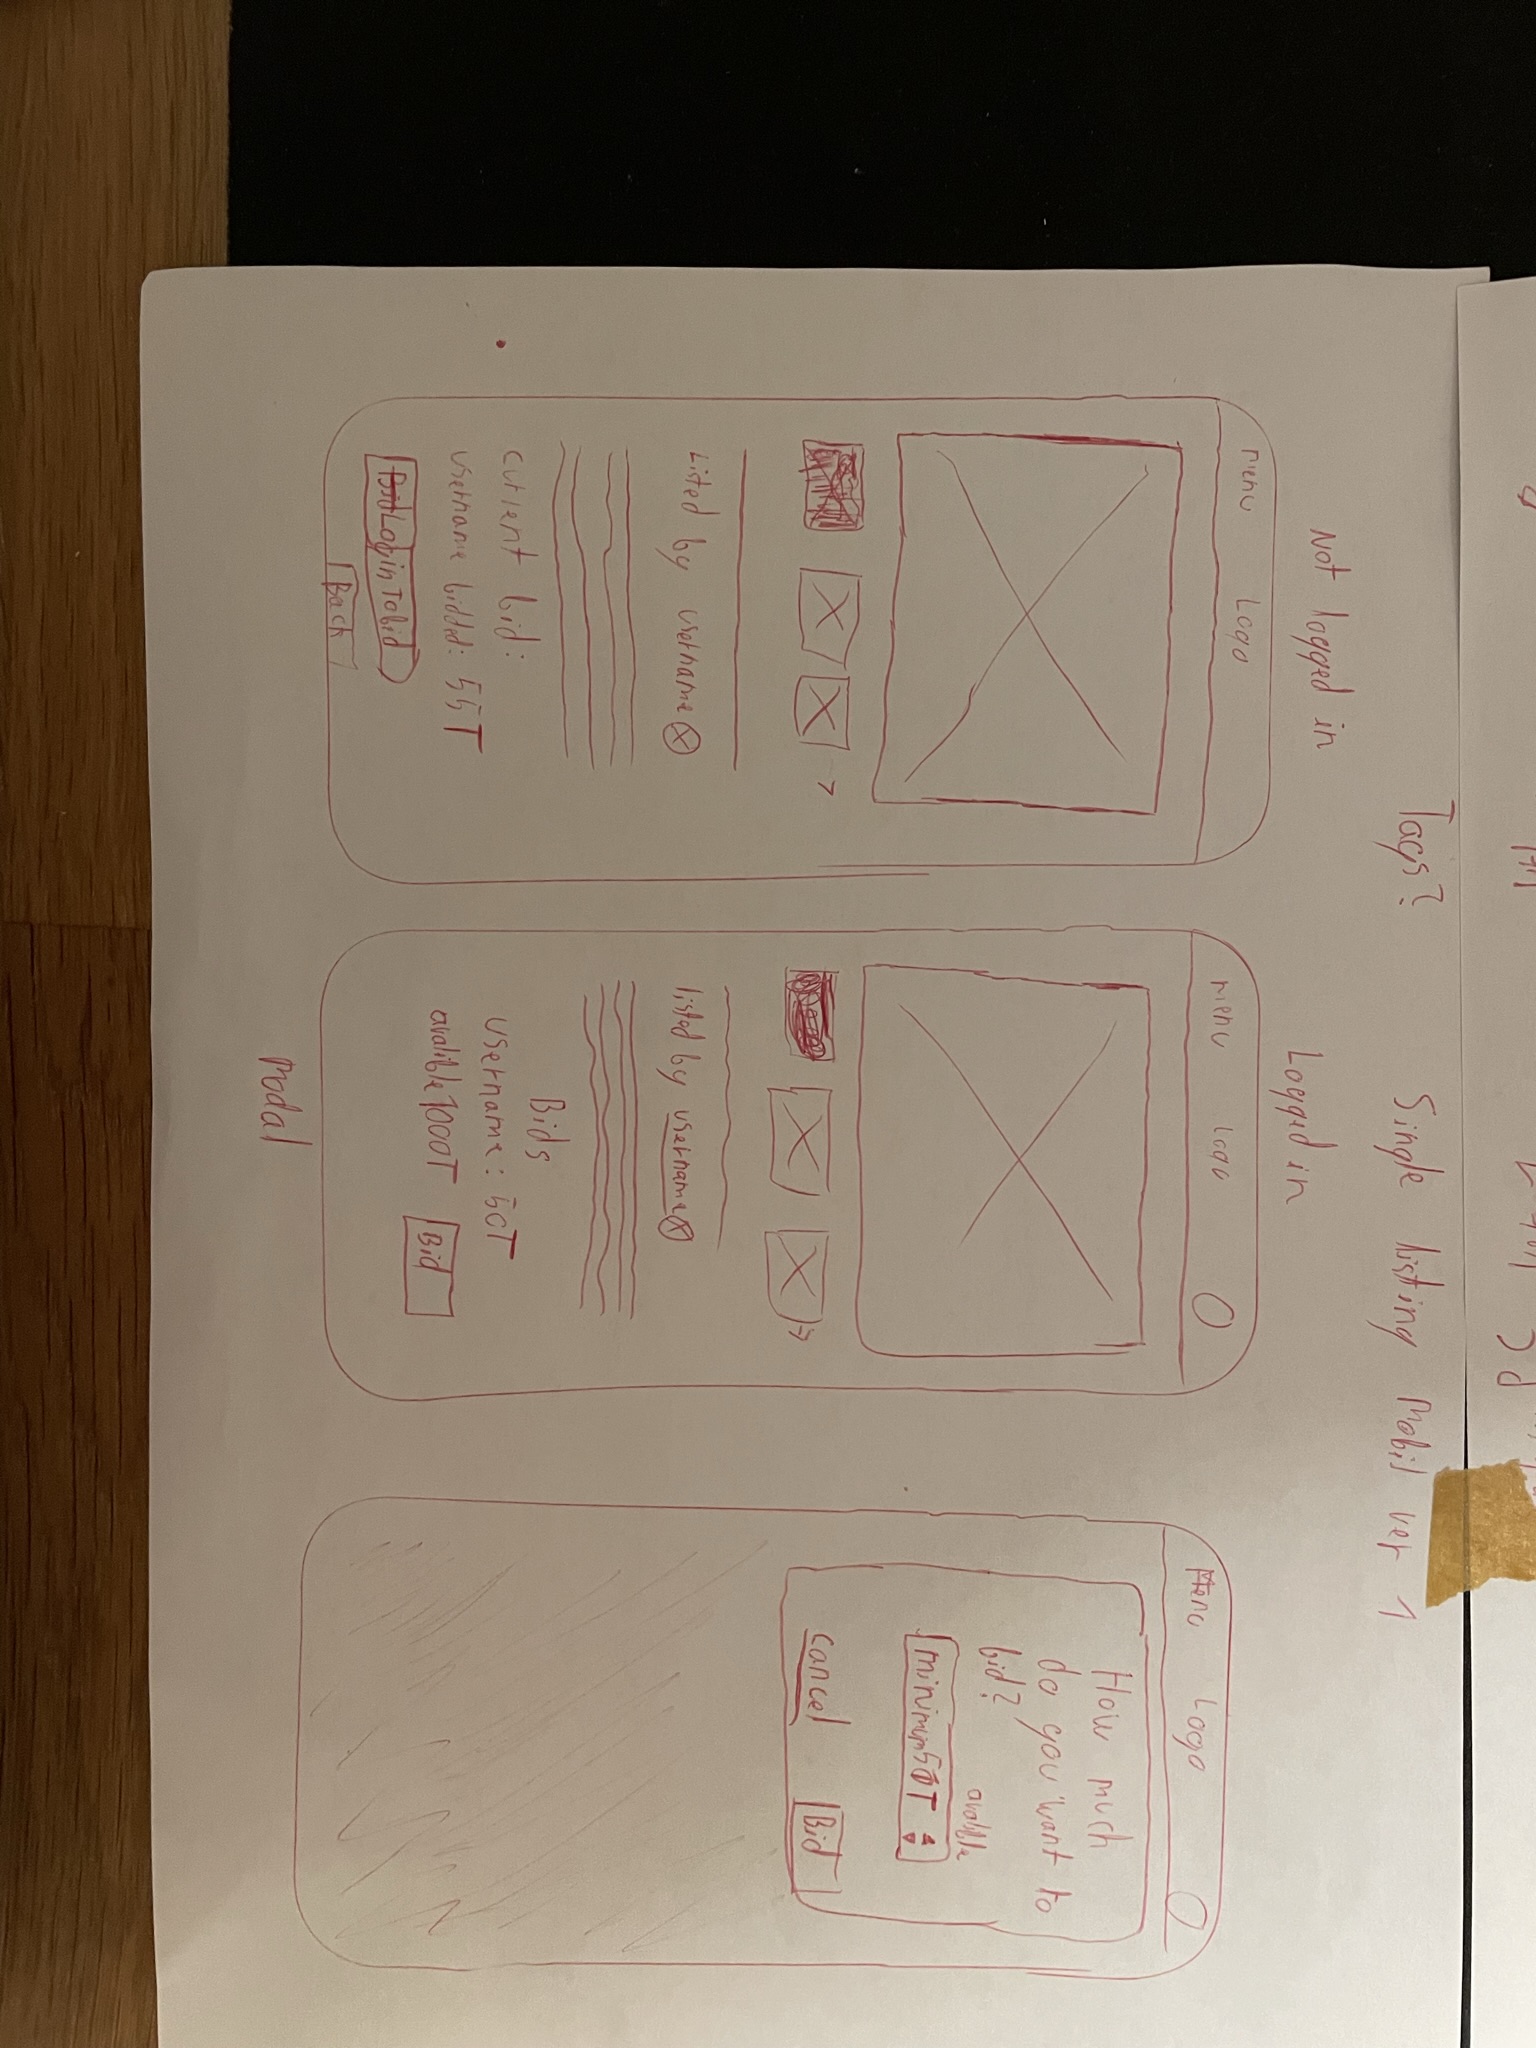 Tags?
Single listing Mobil ver 1
Not logged in
Logged in
menu Logo
Listed by username
current bid:
username bidded: 55T
Login To bid
Back
menu Logo
listed by username
Bids
username: 50T
avalible 1000T Bid
modal
Menu Logo
How much
do you want to
bid?
avalible
minimum 51T
cancel Bid